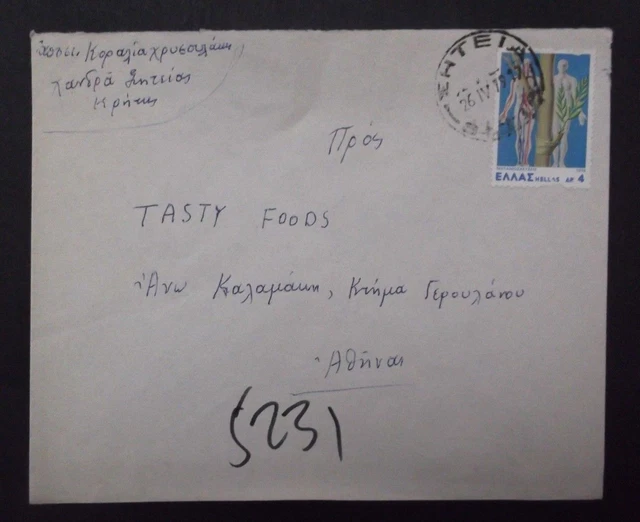 Κοραλία Χρυσουλάκη,
Χανδρά Σητείας
Κρήτης
ΣΗΤΕΙΑ
26 IV
ΕΛΛΑΣ HELLAS ΔΡ 4
Πρός
TASTY FOODS
Άνω Καλαμάκη, Κτήμα Γερουλάνου
Αθήνας
5231